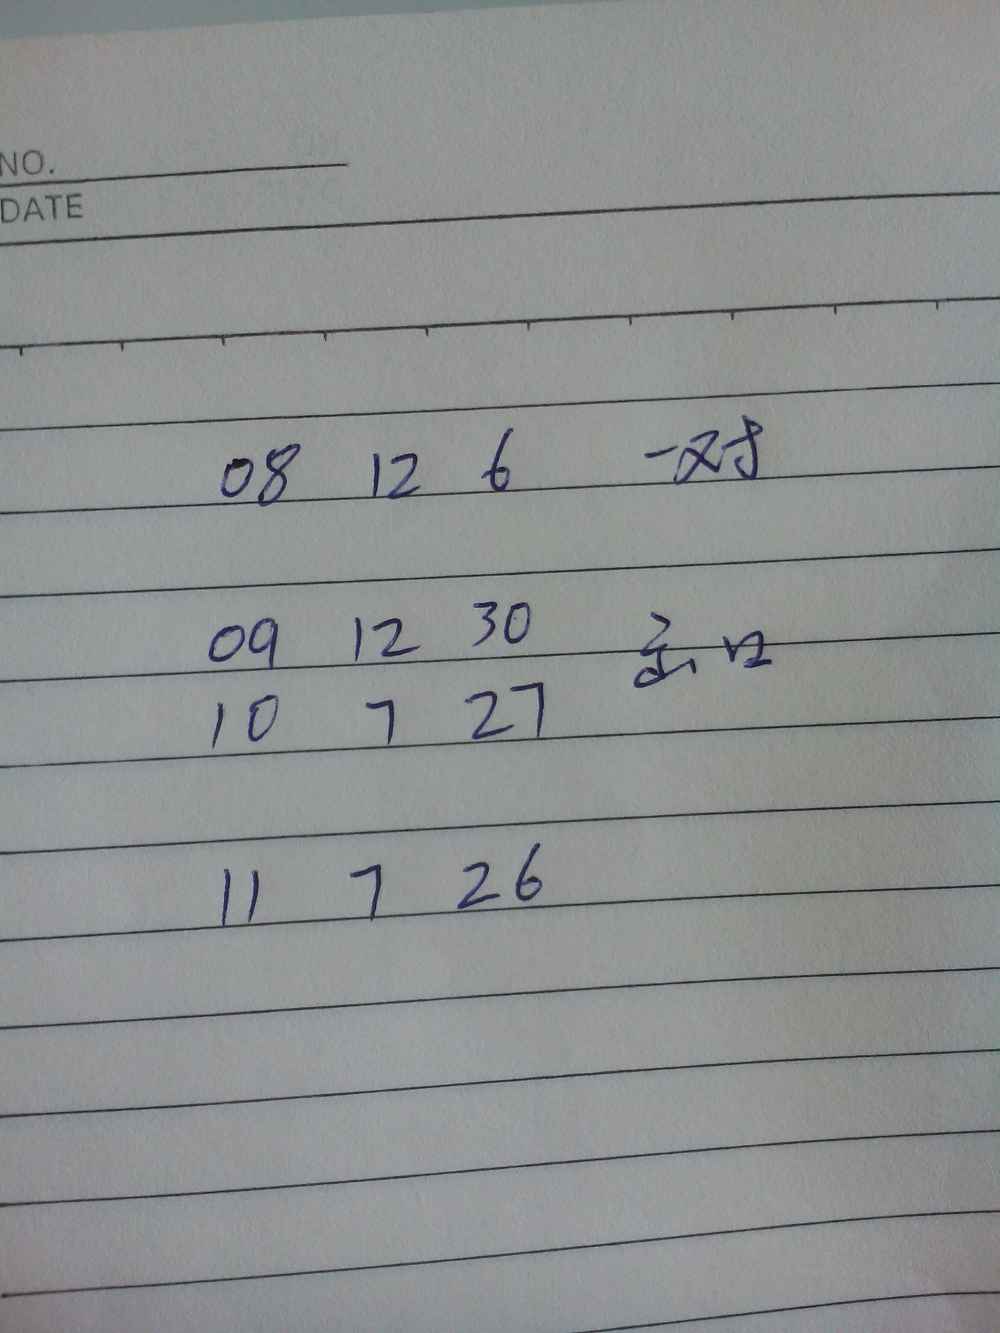 NO.
DATE
08 12 6 一对
09 12 30
10 7 27
11 7 26